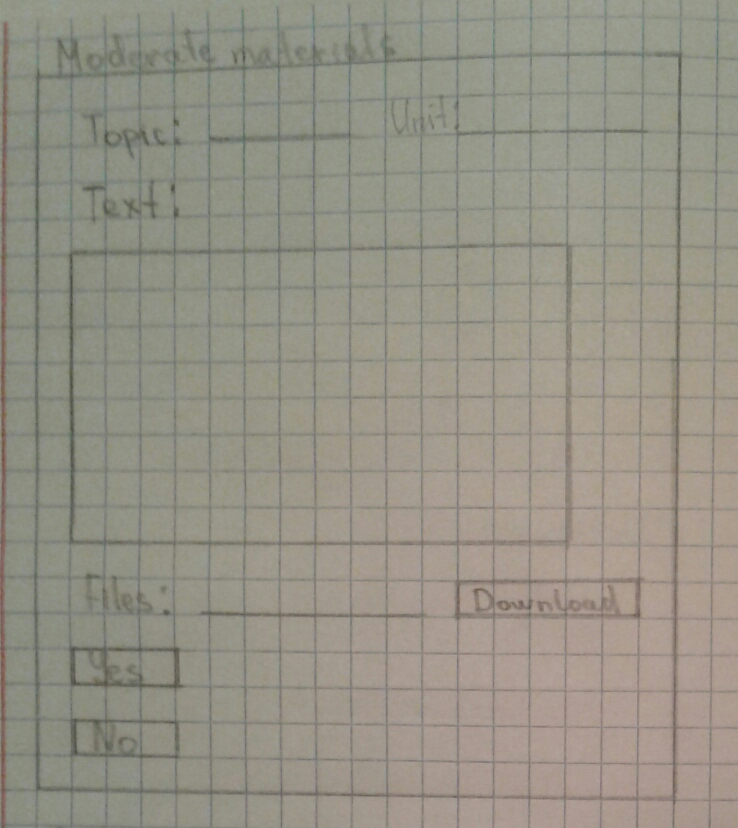 Moderate materials
Topic: Unit:
Text:
Files: Download
Yes
No